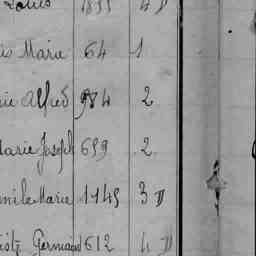 Louis 1855 4 D
is Marie 64 1
ie Alfred 984 2
Marie Joseph 659 2
mile Marie 1145 3 D
Germain 612 4 D